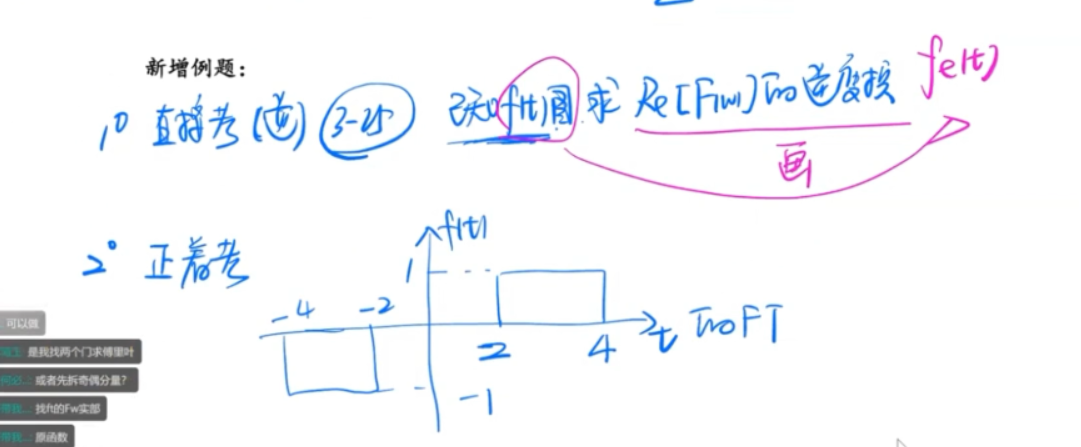 新增例题：
1° 直接考(逆) (3-2) 已知f(t)图求 Re[F(w)]的逆变换 fe(t)
画
2° 正着考
f(t)
1
-4 -2
2 4 t 的FT
-1
可以做
是我找两个门求傅里叶
或者先拆奇偶分量？
找ft的Fw实部
原函数